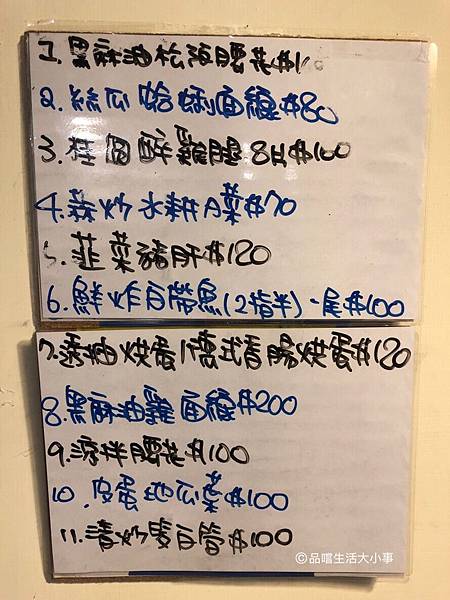 1.黑麻油松阪腰花$1
2.絲瓜蛤蜊面線$80
3.桂圓醉雞腿8片$100
4.蒜炒水耕A菜$70
5.韮菜豬肝$120
6.鮮炸白帶魚(2指半)1尾$100
7.透抽烘蛋/德式香腸烘蛋$120
8.黑麻油雞面線$200
9.涼拌腰花$100
10.皮蛋地瓜葉$100
11.清炒雙白管$100
©品嚐生活大小事